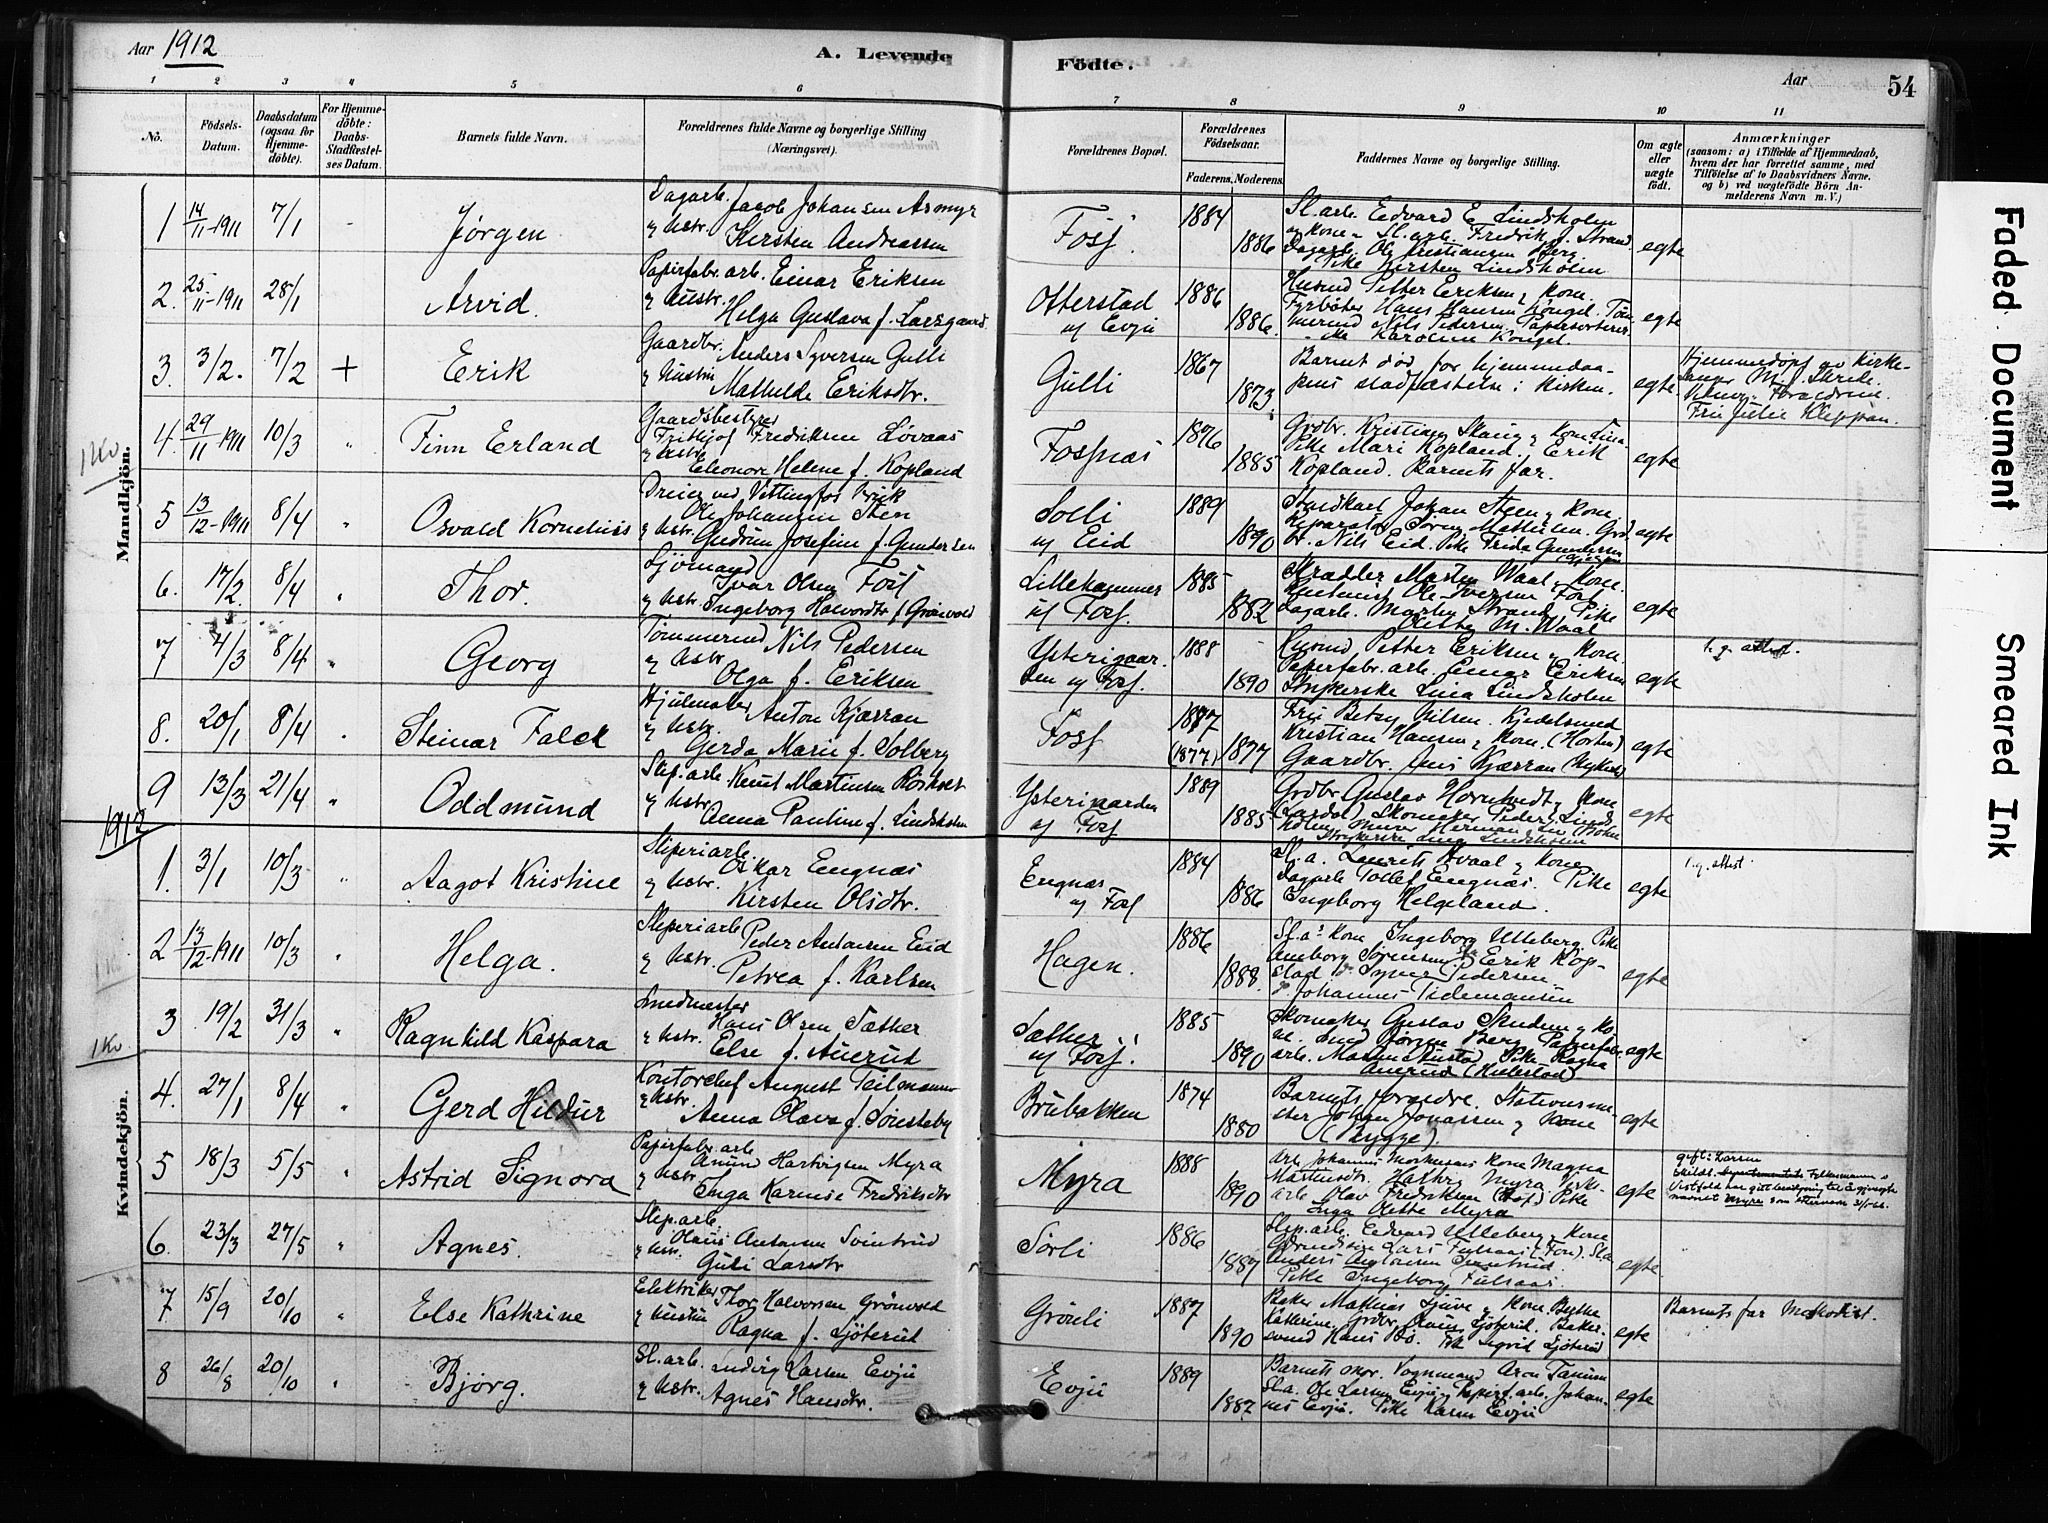 Aar 1912
A. Levende Födte.
Aar
54
1 2 3 4 5 6 7 8 9 10 11
No.
Födsels-Datum.
Daabsdatum (ogsaa for Hjemmedöbte).
For Hjemmedöbte: Daabs-Stadfæstelses Datum.
Barnets fulde Navn.
Forældrenes fulde Navne og borgerlige Stilling (Næringsvei).
Forældrenes Bopæl.
Forældrenes Födselsaar.
Faderens. Moderens.
Faddernes Navne og borgerlige Stilling.
Om ægte eller uægte födt.
Anmærkninger
(saasom: a) i Tilfælde af Hjemmedaab, hvem der har forrettet samme, med Tilföielse af to Daabsvidners Navne. og b) ved uægtefödte Börn Anmelderens Navn m. V.)
Mandkjön.
1 14/11-1911 7/1 - Jørgen
Dagarb. Jacob Johansen Asmyr
og hstr. Kirsten Andreassen
Fosf. 1884 1886
Sl.arb. Edvard E. Lindsholm
og kone. Sl.arb. Fredrik J. Strand
Dagarb. Ole Kristiansen Berg
Pike Kirsten Lindsholm
egte
2. 25/11-1911 28/1 Arvid.
Papirfabr. arb. Einar Eriksen
og hustr. Helga Gustava f. Larsgaard
Otterstad og Evju 1886 1886.
Husmd Petter Eriksen og kone.
Fyrbøter Hans Hansen Kongel. Tømmermd Nils Pedersen. Papersorterer
Karoline Kongel.
egte
3. 3/2. 7/2 + Erik
Gaardbr. Anders Syversen Gulli
og hustru Mathilde Eriksdtr.
Gulli 1867 1873.
Barnet død før hjemmedaapens stadfæstelse i kirken.
egte
Hjemmedøpt av kirkesanger M. J. Skrede.
Vidner: Forældrene.
Fru Julie Kleppan.
4. 29/11-1911 10/3 " Finn Erland
Gaardsbestyrer Frithjof Fredriksen Løvaas
og hstr. Eleonore Helene f. Kopland
Fosnæs 1876 1885
Grdbr. Kristian Skaug og kone Lina
Pike Mari Kopland. Erik Kopland. Barnets far.
egte
5 13/12-1911 8/4 " Osvald Kornelius
Dreier ved Vittingfos bruk
Ole Johansen Steen
og hstr. Gudrun Josefine f. Gundersen
Solli og Eid 1889 1890
Johan Steen og kone.
Reparatør Søren Mathisen. Grdbr. Nils Eid. Pike Frida Gundersen
egte
6. 17/2. 8/4 " Thor.
Sjømand Ivar Olsen Fosf
og hstr. Ingeborg Halvordtr. f. Grønvold
Lillehammer og Fosf. 1885 1882
Skrædder Martin Waal og kone.
Ole Iversen Fosf
Dagarb. Martin Strand. Pike
M. Waal
egte
7 4/3 8/4 " Georg
Tømmermd Nils Pedersen
og hstr. Olga f. Eriksen
Ysterigaarden og Fosf. 1888 1890
Husmd Petter Eriksen og kone.
Papirfabr. arb. Einar Eriksen
Strykerske Lina Lindsholm
egte
l. g. attest.
8. 20/1 8/4 " Steinar Falck
Hjulmaker Anton Kjærran
og hstr. Gerda Marie f. Solberg
Fosf 1887 (1877) 1877
Fru Betzy Nilsen. Kjedelsmed
Kristian Hansen og kone. (Horten)
Gaardbr. Jens Kjærran
egte
9 13/3 21/4 " Oddmund
Slip.arb. Knut Martinsen Røsholt
og hstr. Anna Pauline f. Lindsholm
Ysterigaarden og Fosf 1889 1885
Grdbr. Gustav Horntvedt og kone
(Lardal) Skomaker Peder Lindsholm
Lindsholm
egte
1 Kv.
1912
Kvindekjön.
1. 3/1 10/3 " Aagot Kristine
Sliperiarb. Oskar Engnæs
og hstr. Kirsten Olsdtr.
Engnæs og Fosf 1884 1886
Sl.a. Laurits Hvaal og kone
Dagarb. Tollef Engnæs. Pike
Ingeborg Helgeland.
egte
l. g. attest.
2 13/12-1911 10/3 " Helga.
Sliperiarb. Peder Antonsen Eid
og hstr. Petrea f. Karlsen
Hagen. 1886 1888.
Sl.a.s kone Ingeborg Ulleberg. Pike
Sørensen. Erik Kopstad
Syver Pedersen
Johannes Tidemansen
egte
1 Kv.
3 19/2 31/3 " Ragnhild Kaspara
Smedmester Hans Olsen Sæther
og hstr. Else f. Auerud
Sæther og Fosf. 1885 1890
Skomaker Gustav Skudem og kone.
Smed Jørgen Berg Papirfabr.arb.
Pike Ragna
Auerud
egte
1 Kv.
4. 27/1 8/4 " Gerd Hildur
Kontorchef August Teilmann
og hstr. Anna Olava f. Sønsteby
Brubakken 1874 1880
Barnets forældre. Stationsmester Johan Jonassen og kone
(Rygge)
egte
5 18/3 5/5 " Astrid Signora
Papirfabr. arb. Anund Hartvigsen Myra
og hstr. Inga Karense Fredriksdtr
Myra 1888 1890
Arb. Johannes kone Magna
Martinsdtr. Hartvig Myra
arb. Olav Fredriksen (Hof) Pike
Inga Olette Myra
egte
gift: Larsen
Skildt.
Vestfold har gitt bevilgning til å gjenopta
navnet Myra som etternavn
6. 23/3 27/5 " Agnes.
Slip.arb. Olaus Antonsen Svinsrud
og hstr. Guli Larsdtr
Sørli 1886 1887
Slip.arb. Edvard Ulleberg og kone
Lars Fulsaas (Fon). Sl.a.
Anders Antonsen
Pike Ingeborg Fulsaas
egte.
7 15/9 20/10 " Else Kathrine
Elektriker Thor Halvorsen Grønvold
og hustru Ragna f. Sjøterud
Grønli 1887 1890
Baker Mathias Sjuve og kone Birthe
Kathrine. Grdbr. Olaus Sjøterud. Bakersvend Hans Bø. Frk. Sigrid Sjøterud
egte
Barnets far Methodist.
8 26/8 20/10 " Bjørg.
Sl.arb. Ludvig Larsen Evju
og hstr. Agnes Hansdtr.
Evju 1889 1887
Barnets mor. Vognmand Aron Tanum
Sl.a. Ole Larsen Evju, Papirf.arb. Johannes Evju. Pike Karen Evju
egte
Faded Document
Smeared Ink